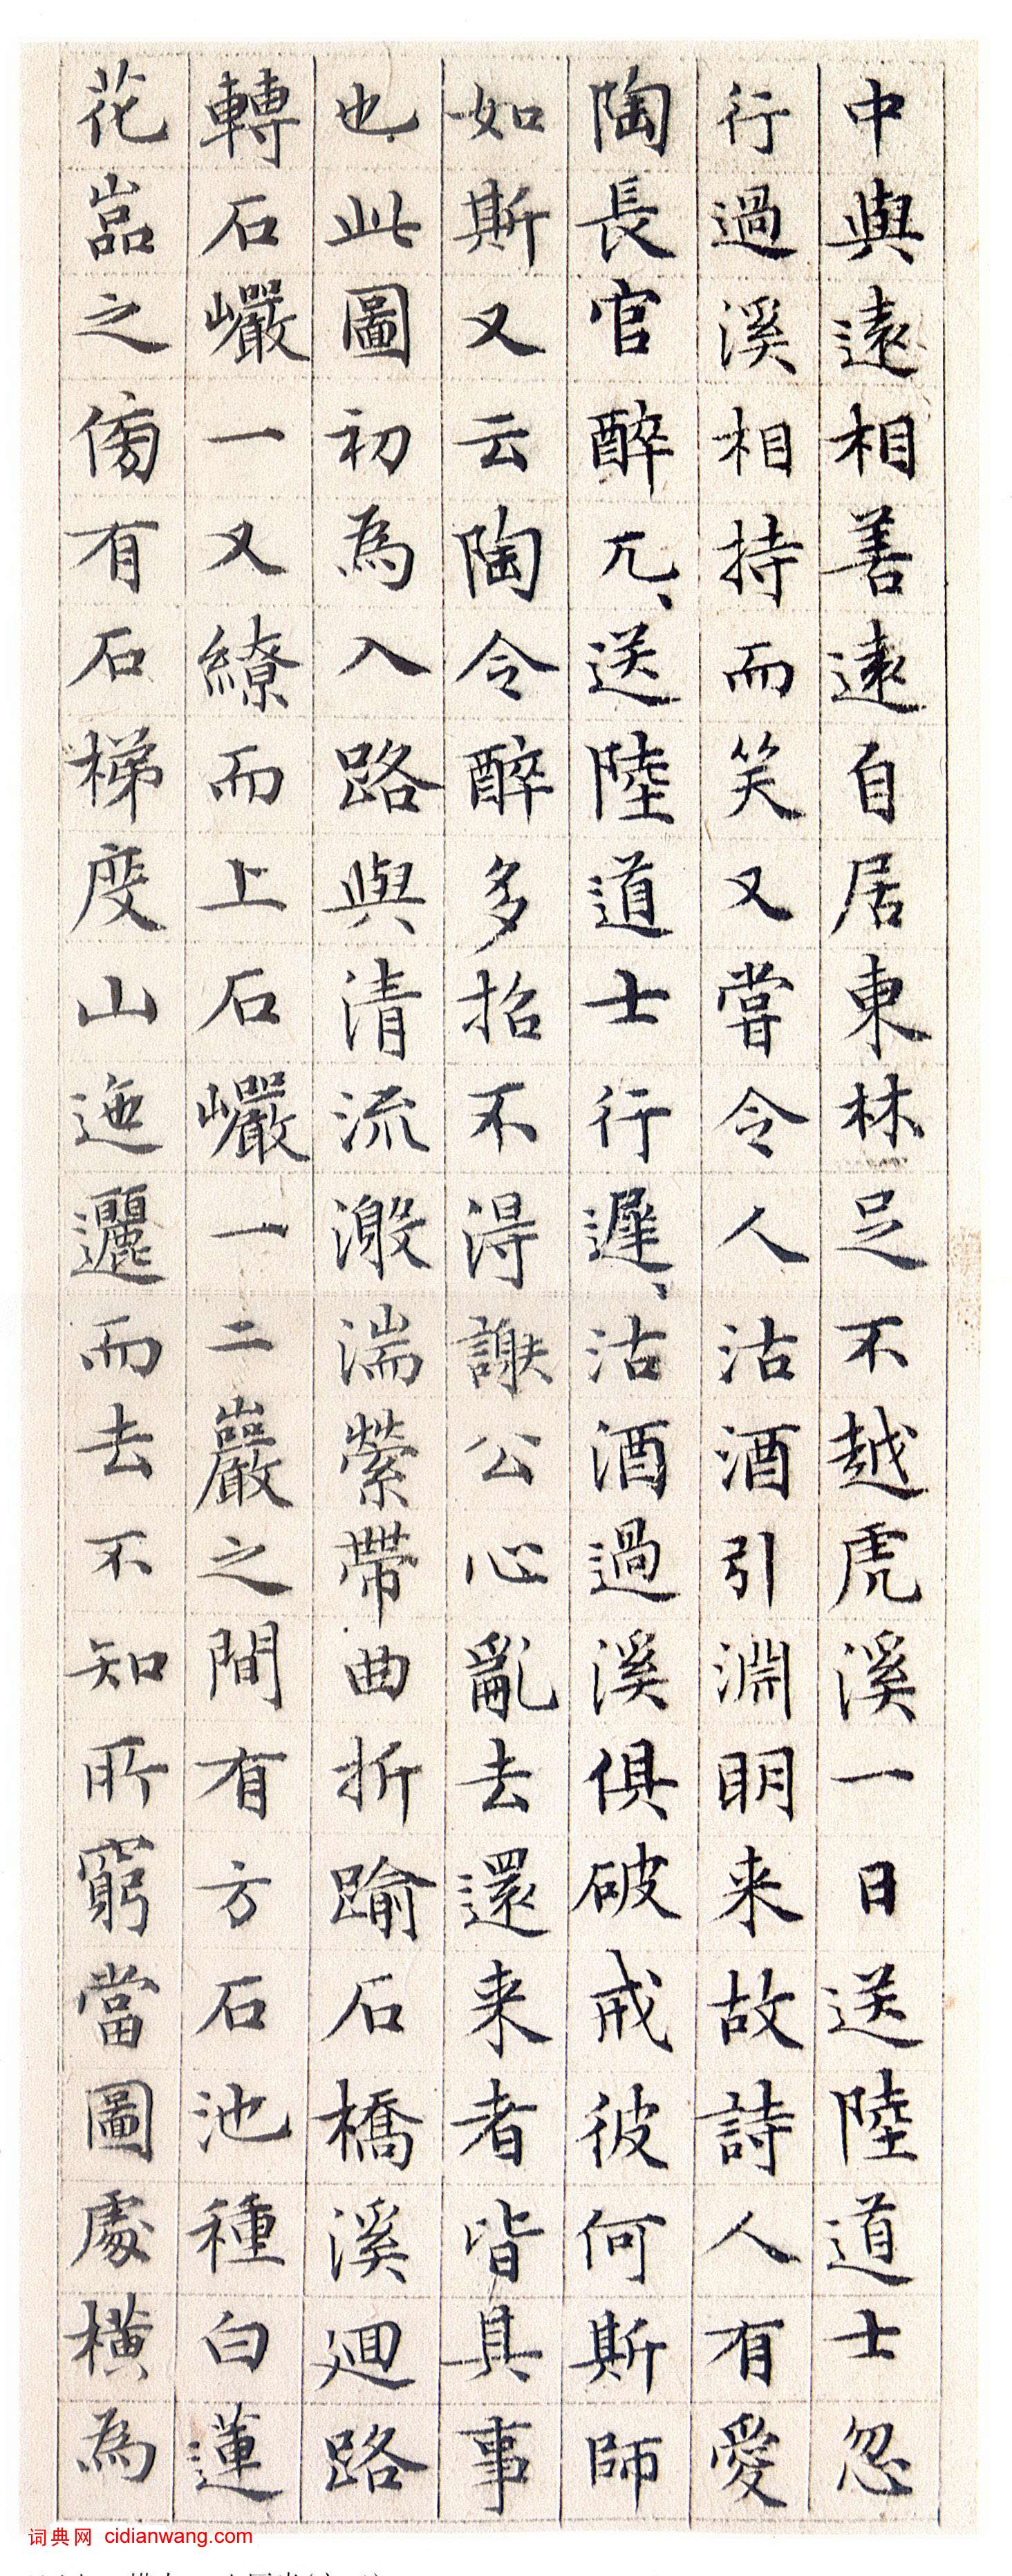 中與遠相善遠自居東林足不越虎溪一日送陸道士忽
行過溪相持而笑又嘗令人沽酒引淵明来故詩人有愛
陶長官醉兀、送陸道士行遲、沽酒過溪俱破戒彼何斯師
如斯又云陶令醉多招不得謝公心亂去還来者皆具事
也此圖初為入路與清流激湍縈帶曲折踰石橋溪迴路
轉石巘一又繚而上石巘一二巖之間有方石池種白蓮
花嵓之傍有石梯度山迤邐而去不知所窮當圖處橫為
词典网 cidianwang.com